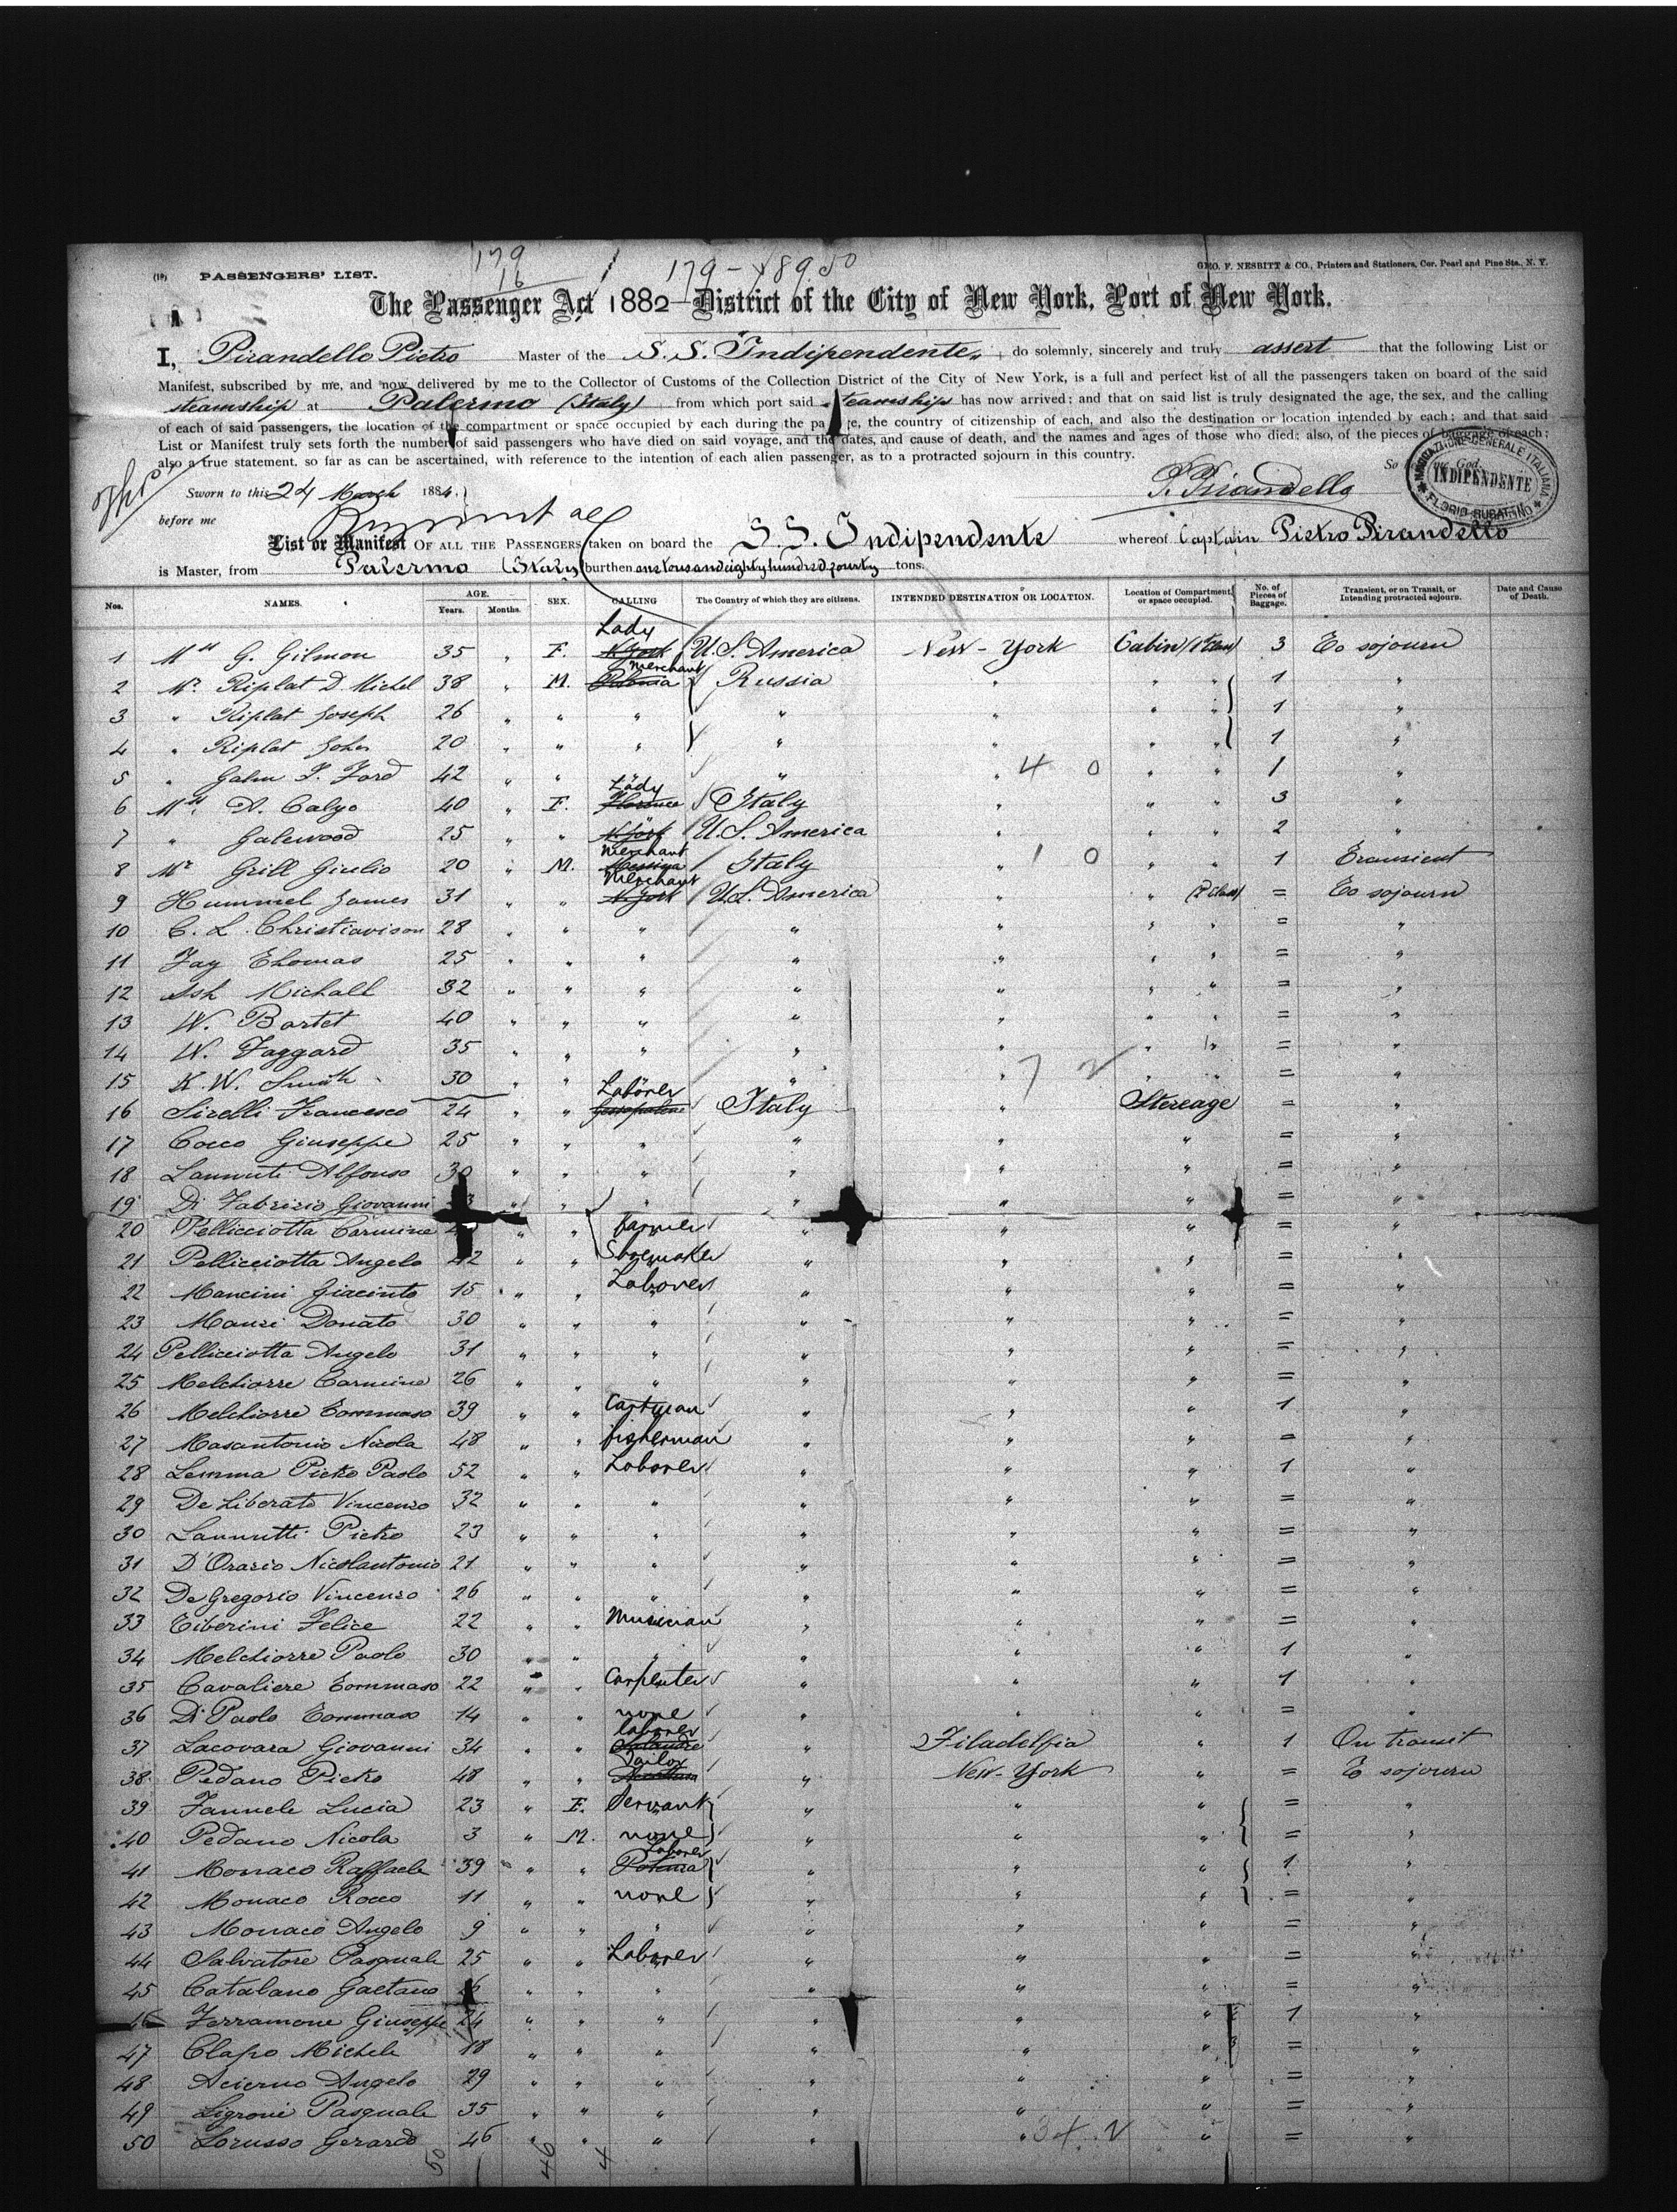 179
16
1
179 -
(19) PASSENGERS' LIST.
GEO. F. NESBITT & CO., Printers and Stationers, Cor. Pearl and Pine Sts., N. Y.
The Passenger Act 1882—District of the City of New York, Port of New York.
I, Pirandello Pietro Master of the S.S. Indipendente, do solemnly, sincerely and truly assert that the following List or
Manifest, subscribed by me, and now delivered by me to the Collector of Customs of the Collection District of the City of New York, is a full and perfect list of all the passengers taken on board of the said
steamship at Palermo (Italy) from which port said steamship has now arrived; and that on said list is truly designated the age, the sex, and the calling
of each of said passengers, the location of the compartment or space occupied by each during the pa ge, the country of citizenship of each, and also the destination or location intended by each; and that said
List or Manifest truly sets forth the number of said passengers who have died on said voyage, and the dates, and cause of death, and the names and ages of those who died; also, of the pieces of baggage of each;
also a true statement, so far as can be ascertained, with reference to the intention of each alien passenger, as to a protracted sojourn in this country.
So God.
NAVIGAZIONE GENERALE ITALIANA
INDIPENDENTE
FLORIO RUBATTINO
Sworn to this 24 March 1884.
P. Pirandello
before me
List or Manifest OF ALL THE PASSENGERS taken on board the S.S. Indipendente whereof Captain Pietro Pirandello
is Master, from Palermo (Italy) burthen tons.
Nos. NAMES. AGE. Years. Months. SEX. CALLING The Country of which they are citizens. INTENDED DESTINATION OR LOCATION. Location of Compartment or space occupied. No. of Pieces of Baggage. Transient, or on Transit, or Intending protracted sojourn. Date and Cause of Death.
1 G. Gilmon 35 " F. Lady N. York U.S. America New-York Cabin (1 Class) 3 To sojourn
2 Mr. Riplat D. Michel 38 " M. merchant Russia " " " 1 "
3 " Riplat Joseph 26 " " " " " " " 1 "
4 " Riplat John 20 " " " " " " " 1 "
5 " Galm F. Ford 42 " " " " 4 0 " " 1 "
6 A. Calyo 40 " F. Lady Florence Italy " " " 3 "
7 " Galewood 25 " " N. York U.S. America " " " 2 "
8 Mr Grill Giulio 20 " M. merchant Messina Italy " 1 0 " " 1 Transient
9 Hummel James 31 " " merchant N. York U.S. America " " (2 Class) = To sojourn
10 C. L. Christiavison 28 " " " " " " " = "
11 Fay Thomas 25 " " " " " " " = "
12 Ash Michall 32 " " " " " " " = "
13 W. Bartet 40 " " " " " " " = "
14 W. Faggard 35 " " " " " " " = "
15 K. W. Smith 30 " " " " " 7 2 " " = "
16 Sirelli Francesco 24 " " Laborer Gessopalena Italy " Steerage = "
17 Cocco Giuseppe 25 " " " " " " = "
18 Lannuti Alfonso 30 " " " " " " = "
19 Di Fabrizio Giovanni 3 " " " " " " = "
20 Pellicciotta Carmine " " Farmer " " " = "
21 Pellicciotta Angelo 42 " " Shoemaker " " " = "
22 Mancini Giacinto 15 " " Laborer " " " = "
23 Manzi Donato 30 " " " " " " = "
24 Pellicciotta Angelo 31 " " " " " " = "
25 Melchiorre Carmine 26 " " " " " " = "
26 Melchiorre Tommaso 39 " " Cartman " " " 1 "
27 Masantonio Nicola 48 " " fisherman " " " = "
28 Lemma Pietro Paolo 52 " " Laborer " " " 1 "
29 De Liberato Vincenzo 32 " " " " " " = "
30 Lannutti Pietro 23 " " " " " " = "
31 D'Orazio Nicolantonio 21 " " " " " " = "
32 De Gregorio Vincenzo 26 " " " " " " = "
33 Tiberini Felice 22 " " Musician " " " = "
34 Melchiorre Paolo 30 " " " " " " 1 "
35 Cavaliere Tommaso 22 " " Carpenter " " " 1 "
36 Di Paolo Tommaso 14 " " none " " " = "
37 Lacovara Giovanni 34 " " laborer " Filadelfia " 1 On transit
38 Pedano Pietro 48 " " Tailor " New-York " = To sojourn
39 Fannele Lucia 23 " F. Servant " " " = "
40 Pedano Nicola 3 " M. none " " " = "
41 Monaco Raffaele 39 " " Laborer Potenza " " " 1 "
42 Monaco Rocco 11 " " none " " " = "
43 Monaco Angelo 9 " " " " " " = "
44 Salvatore Pasquale 25 " " Laborer " " " = "
45 Catalano Gaetano 6 " " " " " " = "
46 Ferramone Giuseppe 24 " " " " " " 1 "
47 Clapo Michele 18 " " " " " " = "
48 Acierno Angelo 29 " " " " " " = "
49 Ligroni Pasquale 35 " " " " " " = "
50 Lorusso Gerardo 46 " " " " " 34 2 " = "
50 46 4